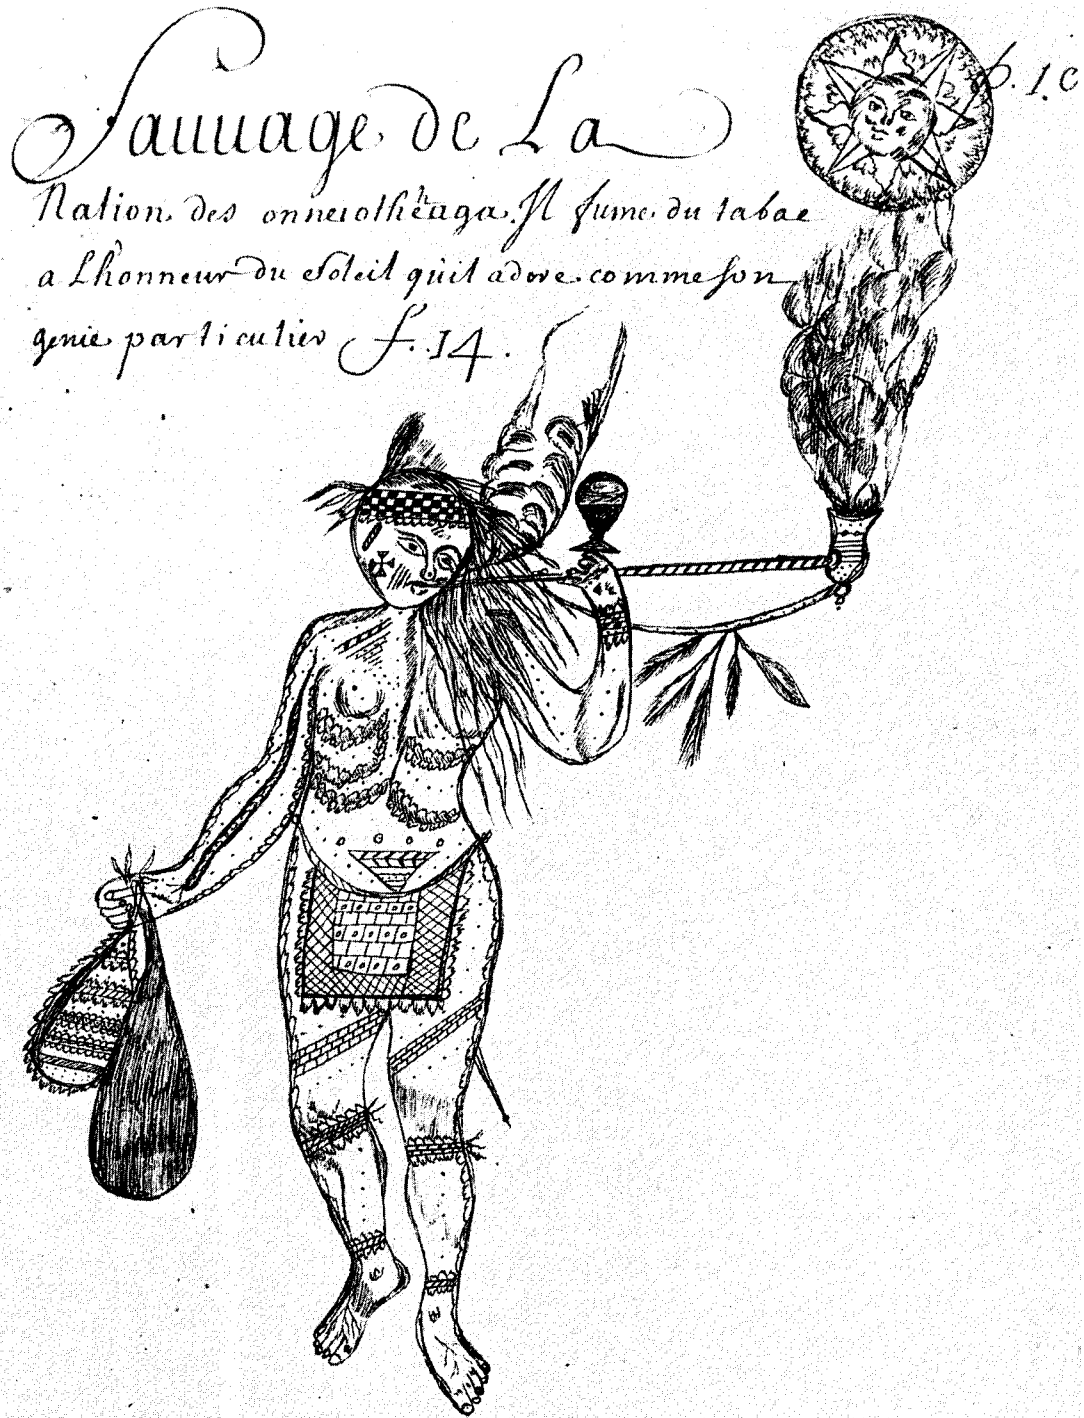 Sauuage de La
p. 10
Nation des onneiothëaga. Il fume du tabac
a Lhonneur du soleil quil adore comme son
genie particulier f. 14.